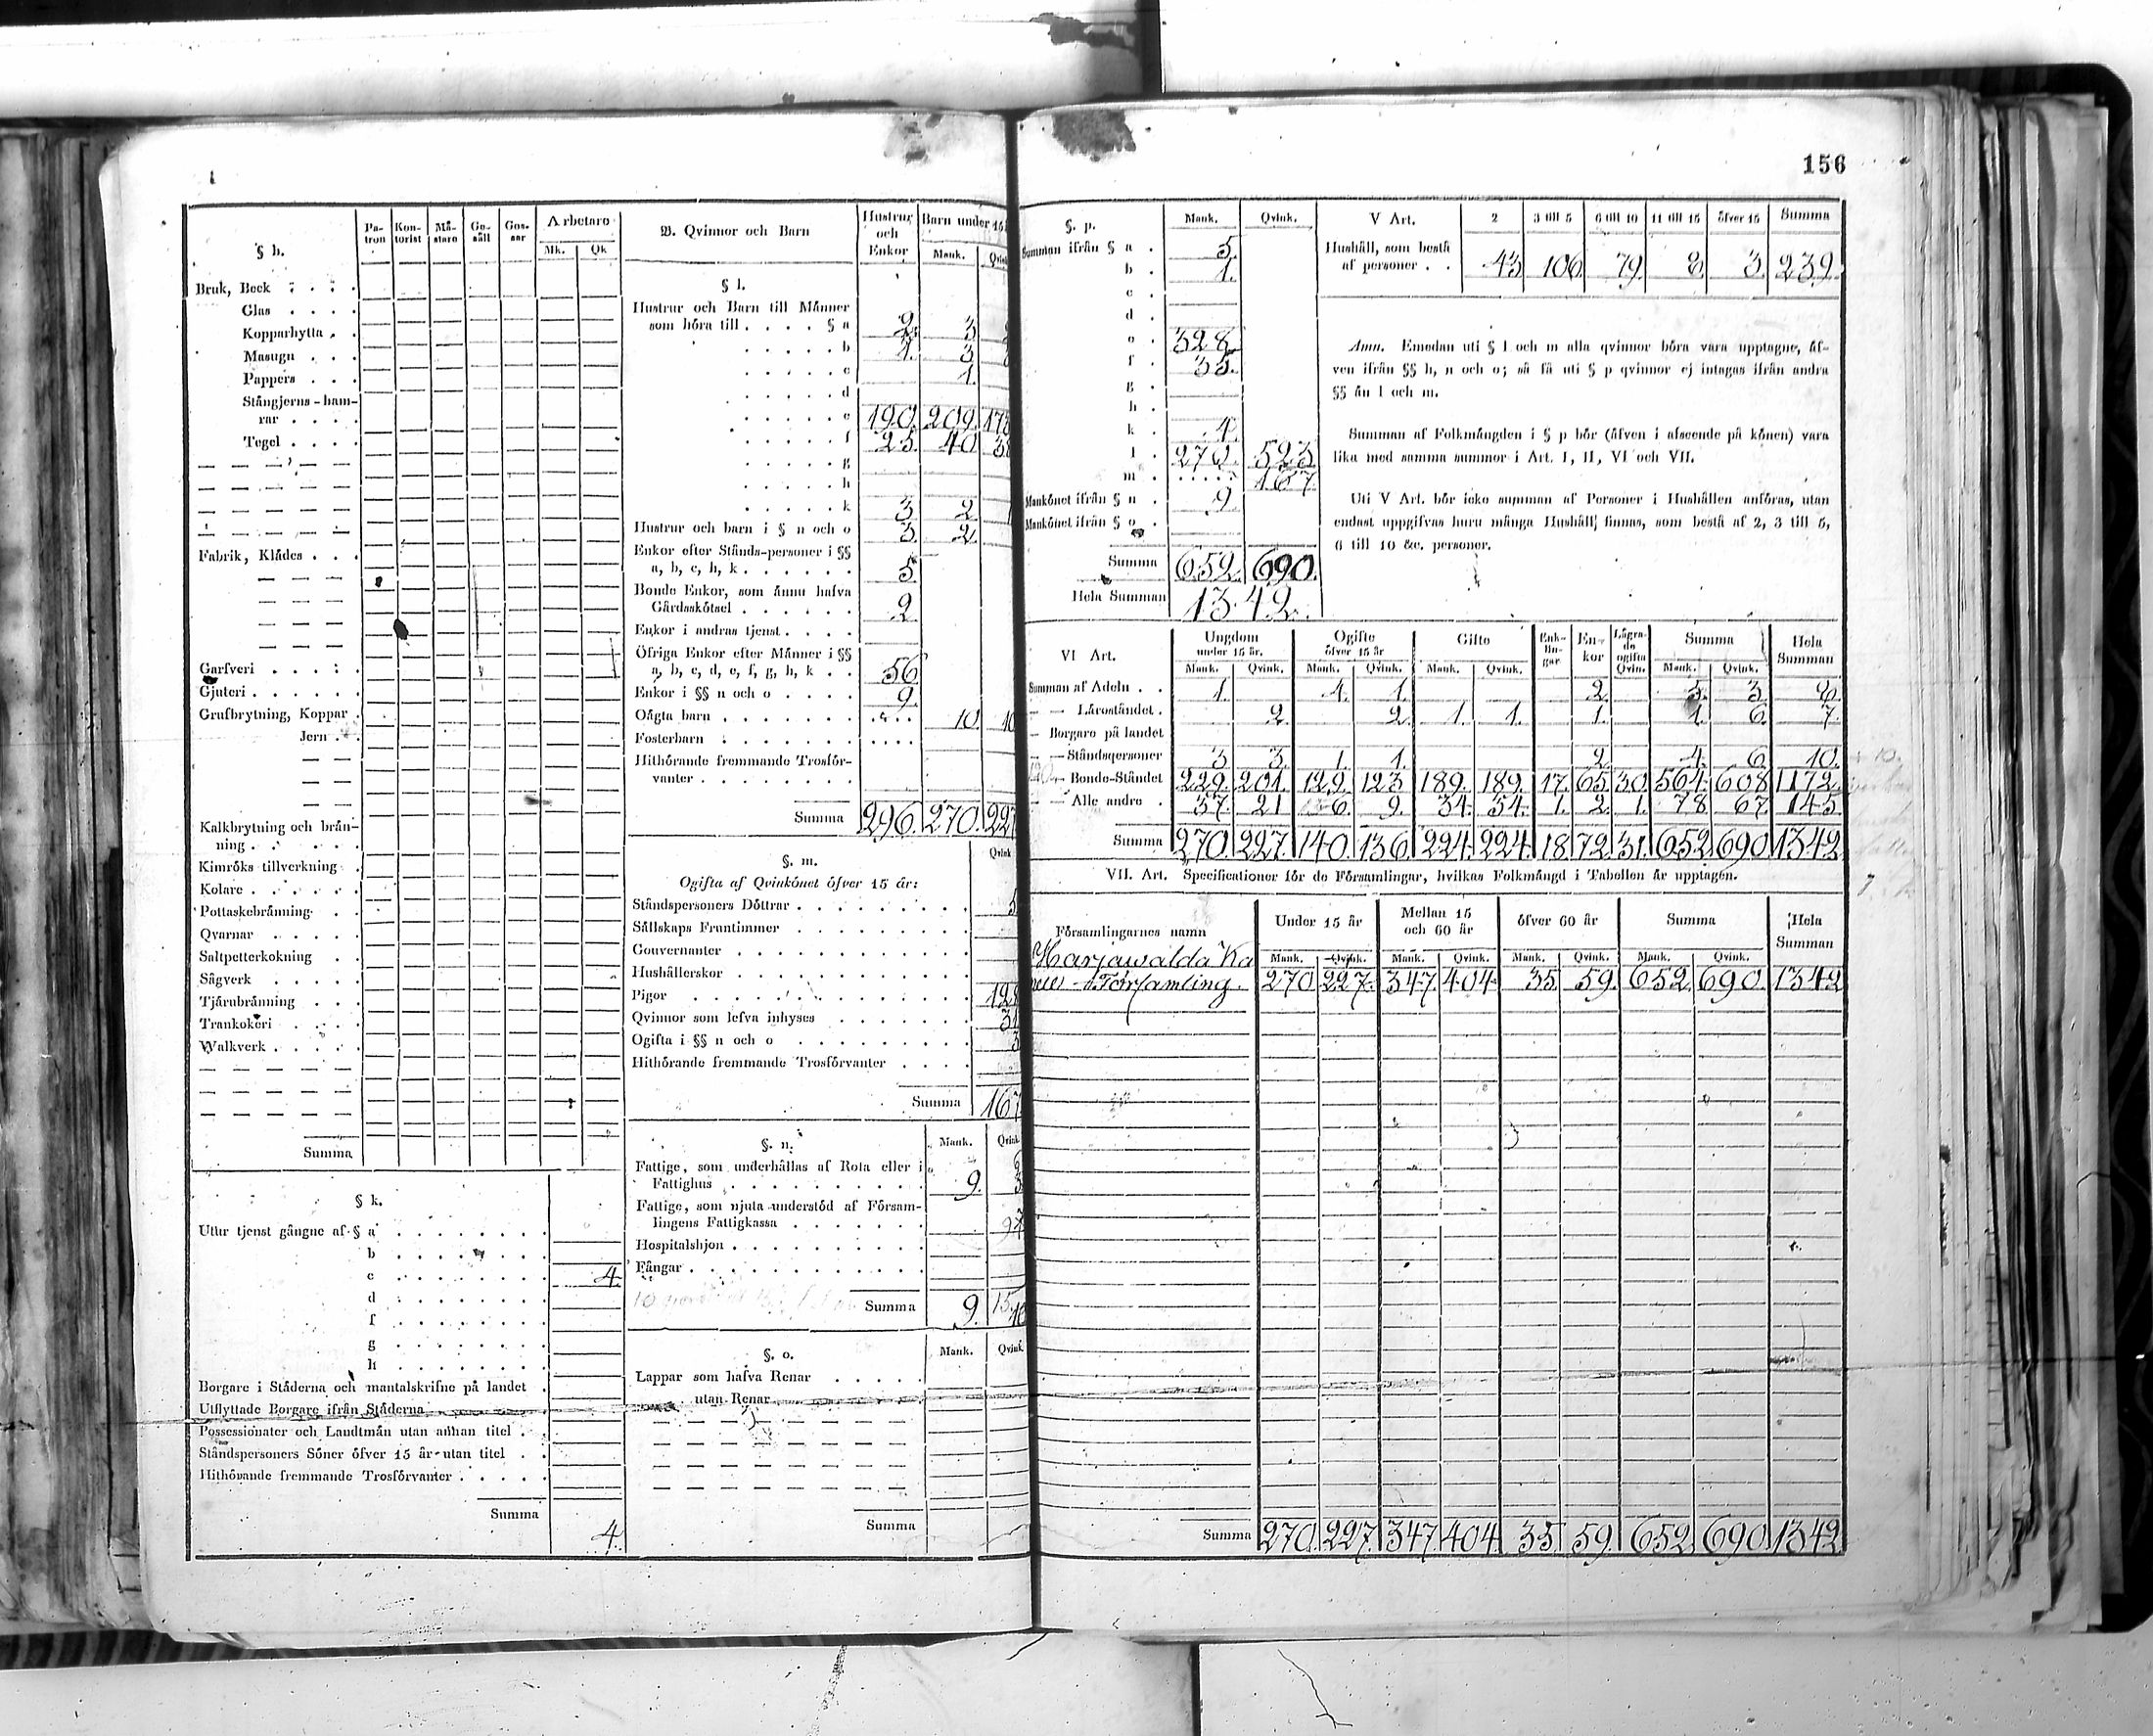 156
§ h. Pa-tron Kon-torist Må-stare Ge-säll Gos-sar Arbetare
Mk. Qk
Bruk, Beck
Glas
Kopparhytta
Masugn
Pappers
Stångjerns-ham-
rar
Tegel
Fabrik, Klädes
Garfveri
Gjuteri
Grufbrytning, Koppar
Jern
Kalkbrytning och brän-
ning
Kimröks tillverkning
Kolare
Pottaskebränning
Qvarnar
Saltpetterkokning
Sågverk
Tjärubränning
Trankokeri
Walkverk
Summa
§ k.
Utur tjenst gångne af § a
b
c 4.
d
f
g
h
Borgare i Städerna och mantalskrifne på landet
Utflyttade Borgare ifrån Städerna
Possessionater och Landtmän utan annan titel
Ståndspersoners Söner öfver 15 år utan titel
Hithörande fremmande Trosförvanter
Summa 4.
B. Qvinnor och Barn Hustrur och Enkor Barn under 15
Mank. Qvink
§ l.
Hustrur och Barn till Männer
som höra till § a 2. 3
b 1. 3
c 1.
d
e 190. 209. 17
f 25. 40 3
g
h
k 3 2
Hustrur och barn i § n och o 3. 2.
Enkor efter Stånds-personer i §§
a, b, c, h, k 5
Bonde Enkor, som ännu hafva
Gårdsskötsel 2.
Enkor i andras tjenst
Öfriga Enkor efter Männer i §§
a, b, c, d, e, f, g, h, k 56
Enkor i §§ n och o 9.
Oägta barn 10. 10
Fosterbarn
Hithörande fremmande Trosför-
vanter
Summa 296. 270. 227
§. m. Qvink
Ogifta af Qvinkönet öfver 15 år:
Ståndspersoners Döttrar 5
Sällskaps Fruntimmer
Gouvernanter
Hushållerskor
Pigor 128
Qvinnor som lefva inhyses 31
Ogifta i §§ n och o 3
Hithörande fremmande Trosförvanter
Summa 167
§. n. Mank. Qvink
Fattige, som underhållas af Rota eller i
Fattighus 9.
Fattige, som njuta understöd af Försam-
lingens Fattigkassa
Hospitalshjon
Fångar
Summa 9.
§. o. Mank. Qvink.
Lappar som hafva Renar
utan Renar
Summa
§. p. Mank. Qvink.
Summan ifrån § a 5.
b 1.
c
d
e 328.
f 35.
g
h
k 4.
l 270. 523
m 167
Mankönet ifrån § n 9.
Mankönet ifrån § o
Summa 652. 690.
Hela Summan 1342.
V Art. 2 3 till 5 6 till 10 11 till 15 öfver 15 Summa
Hushåll, som bestå
af personer 43 106. 79. 8. 3. 239.
Anm. Emedan uti § l och m alla qvinnor böra vara upptagne, äf-
ven ifrån §§ h, n och o; så få uti § p qvinnor ej intagas ifrån andra
§§ än l och m.
Summan af Folkmängden i § p bör (äfven i afseende på könen) vara
lika med samma summor i Art. I, II, VI och VII.
Uti V Art. bör icke summan af Personer i Hushållen anföras, utan
endast uppgifvas huru många Hushåll finnas, som bestå af 2, 3 till 5,
6 till 10 &c. personer.
VI Art. Ungdom under 15 år. Ogifte öfver 15 år Gifte Enk-lin-gar En-kor Lägra-de ogifta Qvin. Summa Hela Summan
Mank. Qvink. Mank. Qvink. Mank. Qvink. Mank. Qvink.
Summan af Adeln 1. 4. 1. 2. 5. 3. 8.
— — Läroståndet 2. 2. 1. 1. 1. 1. 6. 7.
— Borgare på landet
— — Ståndspersoner 3 3. 1. 1. 2. 4. 6. 10.
— — Bonde-Ståndet 229. 201. 129. 123 189. 189. 17. 65. 30. 564. 608 1172.
— — Alle andre 37. 21 6. 9. 34. 34. 1. 2. 1. 78 67 145.
Summa 270. 227. 140. 136. 224. 224. 18. 72. 31. 652 690 1342
VII. Art. Specificationer för de Församlingar, hvilkas Folkmängd i Tabellen är upptagen.
Församlingarnes namn Under 15 år Mellan 15 och 60 år öfver 60 år Summa Hela Summan
Mank. Qvink. Mank. Qvink. Mank. Qvink. Mank. Qvink.
Harjawalda Ka
Församling. 270 227. 347. 404. 35. 59. 652. 690. 1342
Summa 270. 227. 347. 404. 35. 59. 652. 690. 1342